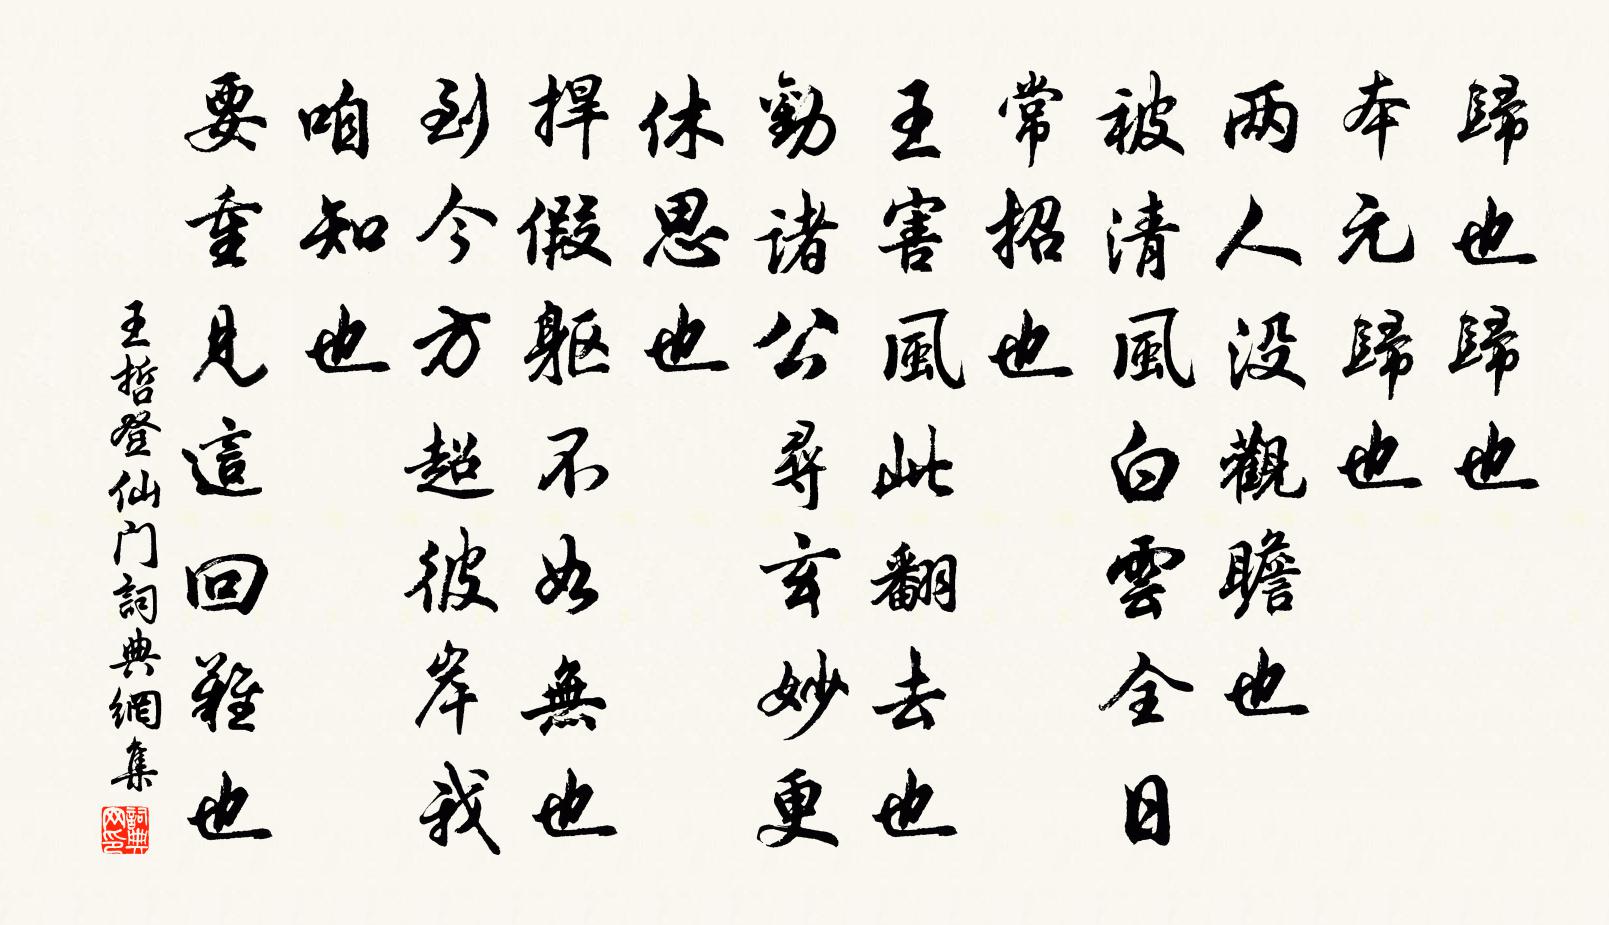 歸也歸也
本元歸也
两人没觀瞻也
被清風白雲全日
常招也
王害風此翻去也
勸諸公尋玄妙更
休思也
捍假軀不如無也
到今方超彼岸我
咱知也
要重見這回難也
王哲登仙门詞典網集
詞典網印